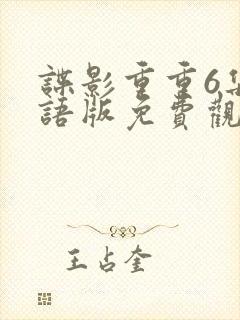 諜影重重6集
語版免費觀
王占奎